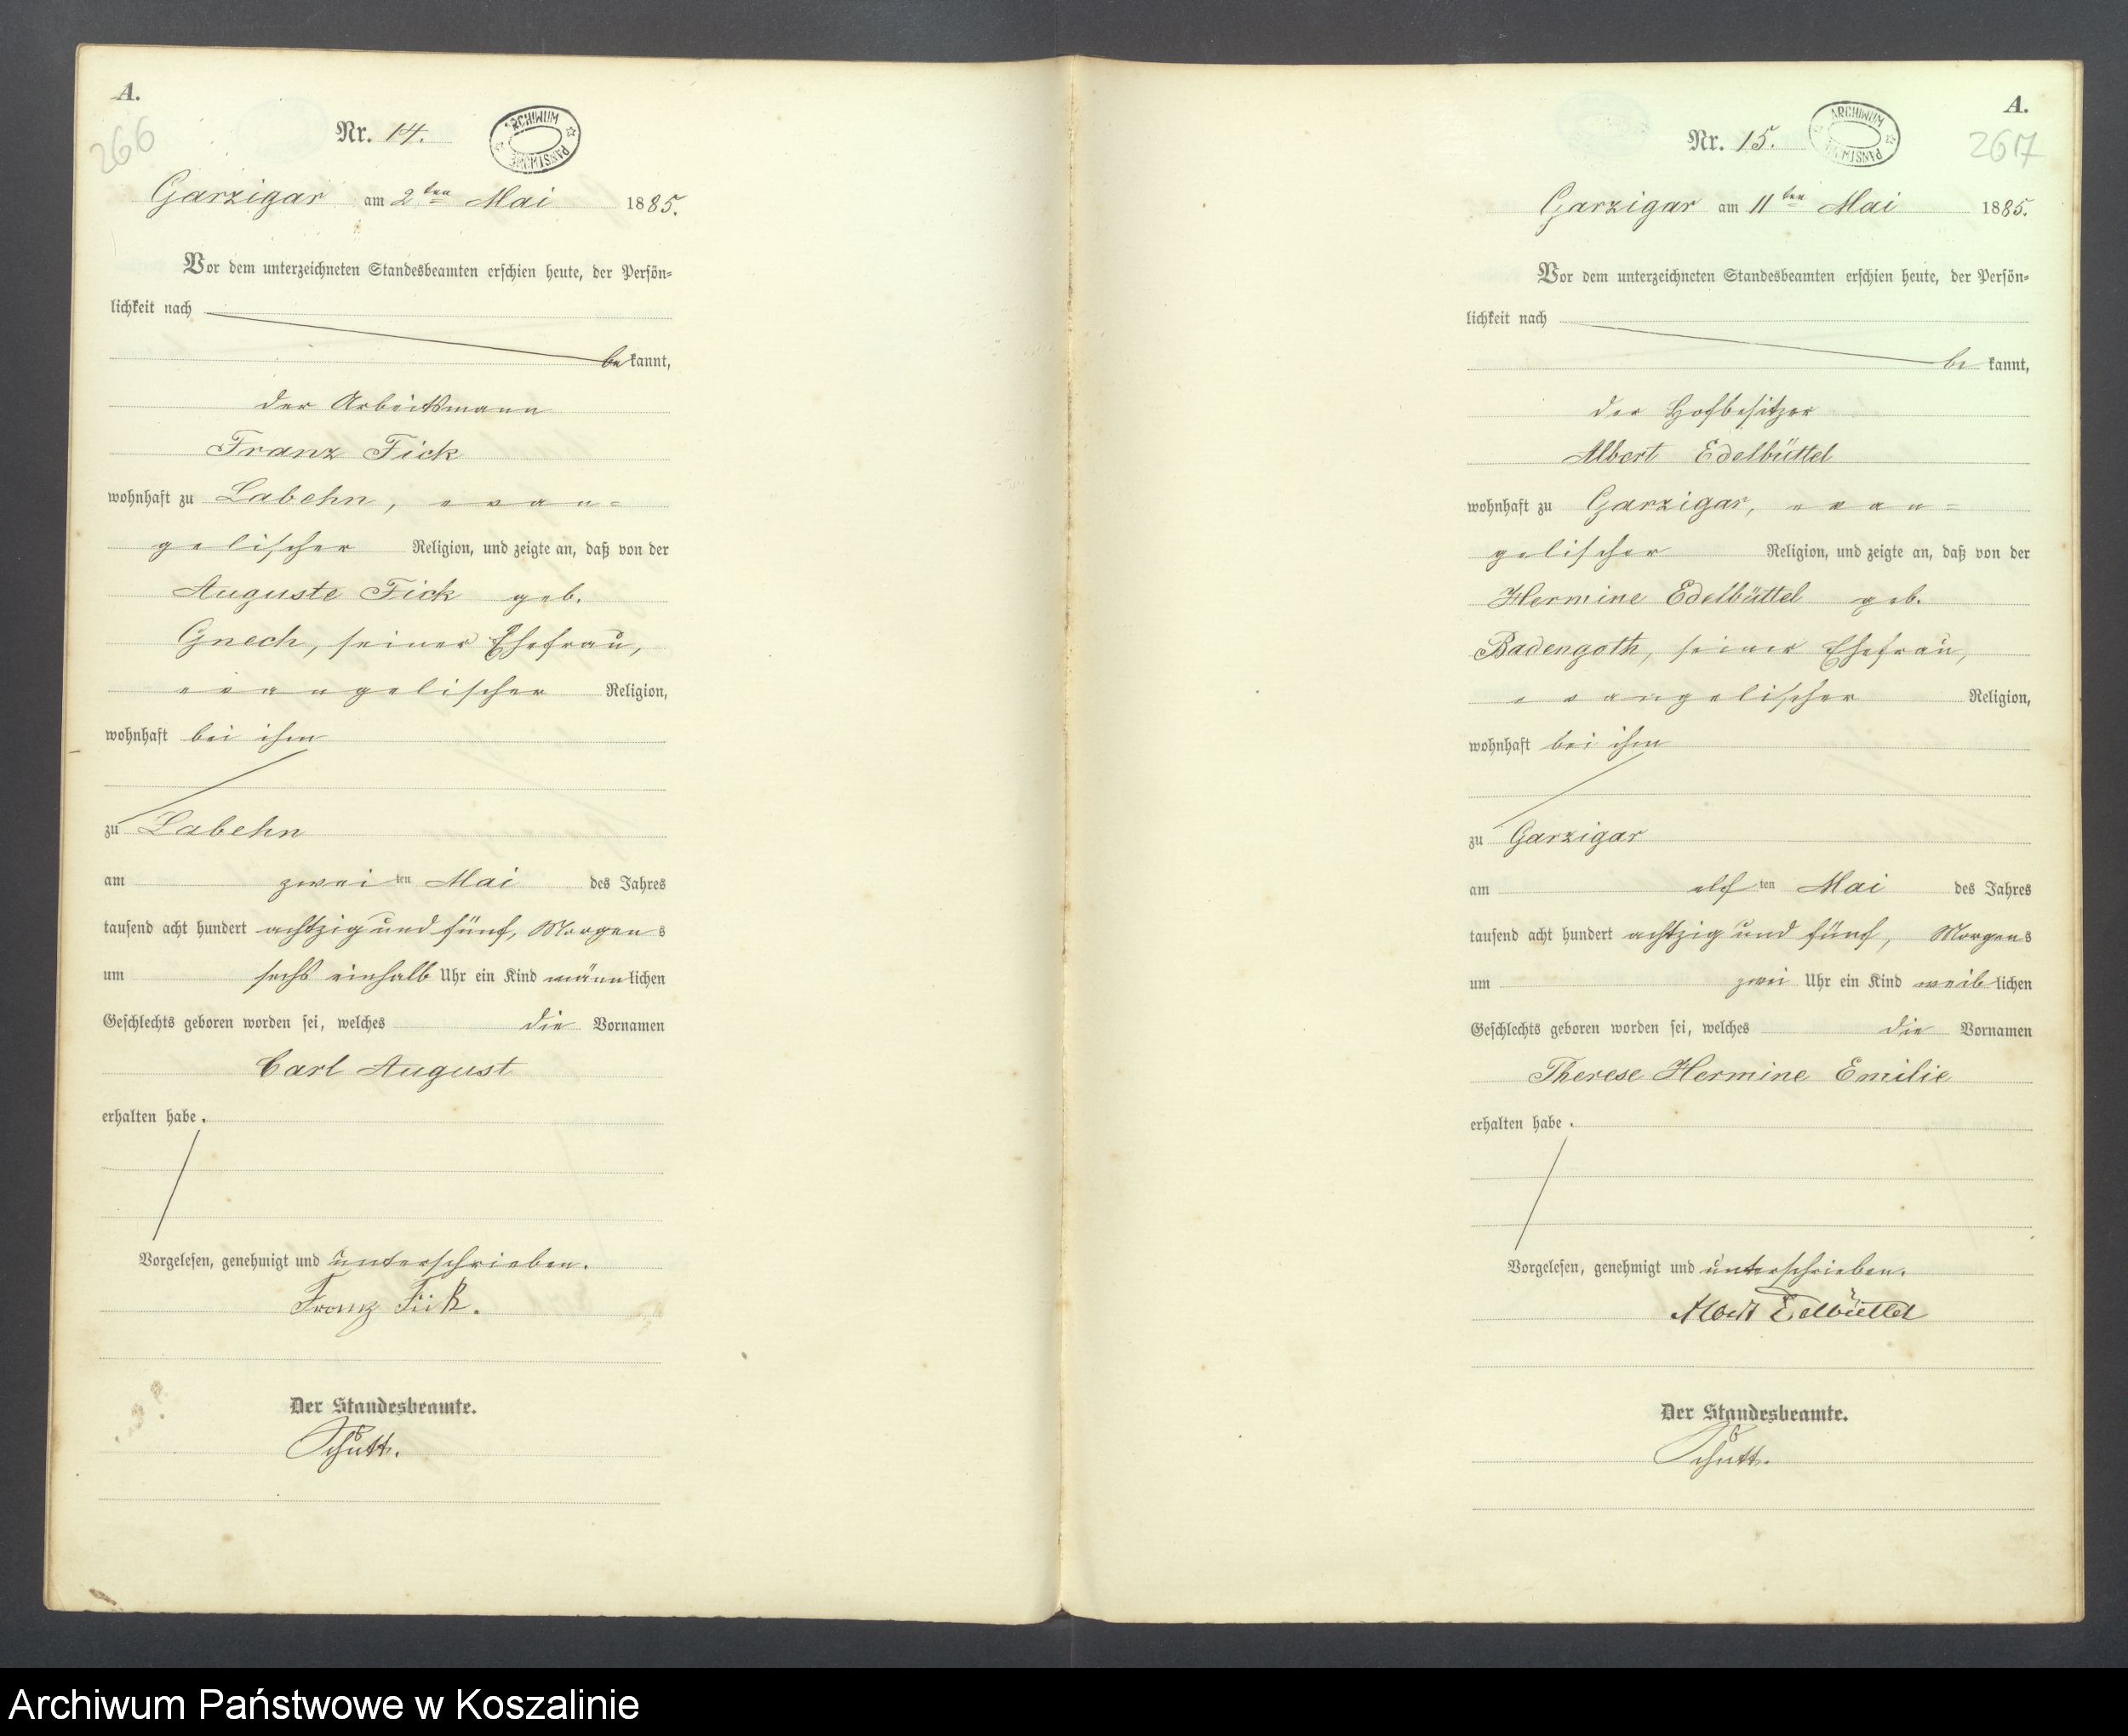 A.
266
Nr. 14.
ARCHIWUM PAŃSTWOWE
Garzigar am 2ten Mai 1885.
Vor dem unterzeichneten Standesbeamten erschien heute, der Persön=
lichkeit nach
bekannt,
der Arbeitsmann
Franz Fick
wohnhaft zu Labehn, evan=
gelischer Religion, und zeigte an, daß von der
Auguste Fick geb.
Gnech, seiner Ehefrau,
evangelischer Religion,
wohnhaft bei ihm
zu Labehn
am zweiten Mai des Jahres
tausend acht hundert achtzig und fünf, Morgens
um sechs einhalb Uhr ein Kind männlichen
Geschlechts geboren worden sei, welches die Vornamen
Carl August
erhalten habe.
Vorgelesen, genehmigt und unterschrieben.
Franz Fick.
Der Standesbeamte.
Schutt.
A.
267
Nr. 15.
ARCHIWUM PAŃSTWOWE
Garzigar am 11ten Mai 1885.
Vor dem unterzeichneten Standesbeamten erschien heute, der Persön=
lichkeit nach
bekannt,
der Hofbesitzer
Albert Edelbüttel
wohnhaft zu Garzigar, evan=
gelischer Religion, und zeigte an, daß von der
Hermine Edelbüttel geb.
Badengoth, seiner Ehefrau,
evangelischer Religion,
wohnhaft bei ihm
zu Garzigar
am elften Mai des Jahres
tausend acht hundert achtzig und fünf, Morgens
um zwei Uhr ein Kind weiblichen
Geschlechts geboren worden sei, welches die Vornamen
Therese Hermine Emilie
erhalten habe.
Vorgelesen, genehmigt und unterschrieben.
Albert Edelbüttel
Der Standesbeamte.
Schutt.
Archiwum Państwowe w Koszalinie